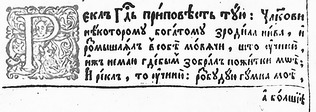 Реклъ Гдь приповѣсть тꙋю: Чл҃кови
нѣкоторому богатому зродила нива, и
розмышлѧлъ в собѣ мовѧчи, што ꙋчиню,
ижъ немаю гдѣ бымъ зобралъ пожитки моѣ,
И реклъ, то ꙋчиню: розбудую гумна моѣ,
а болшіѣ